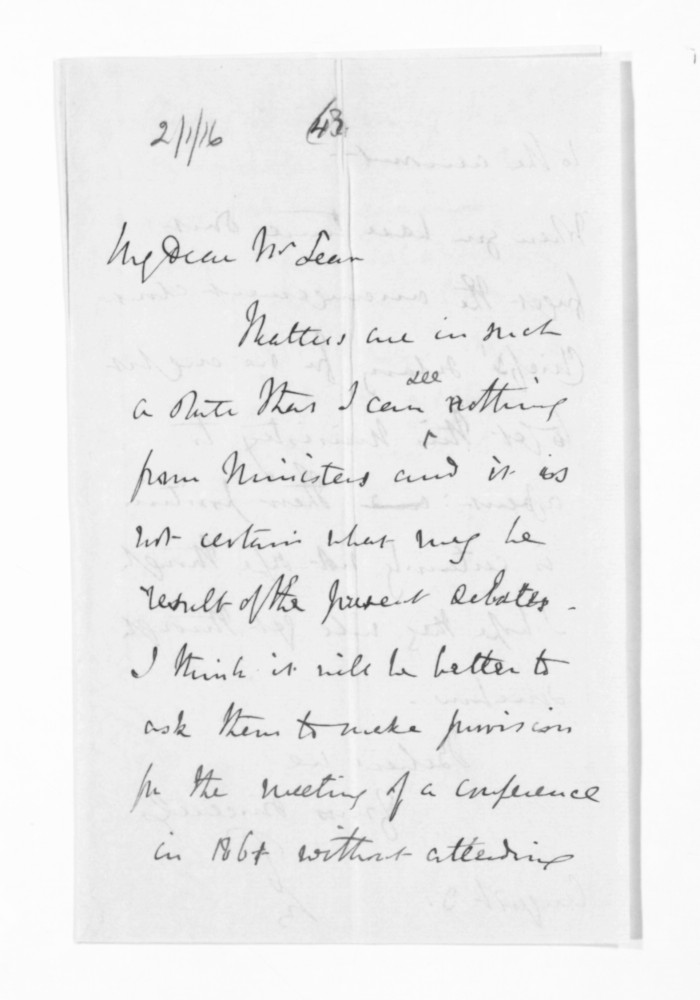 2/1/16 43
My Dear Mr Lean
Matters are in such
a state that I can see nothing
from Ministers and it is
not certain what may be
result of the present debates.
I think it will be better to
ask them to make provision
for the meeting of a conference
in 1861 without attending